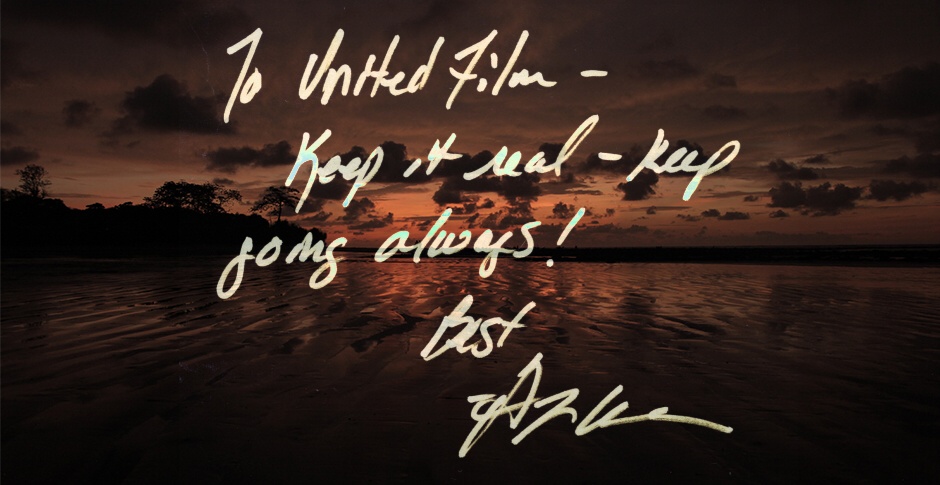 To United Film -
Keep it real - keep
going always!
Best